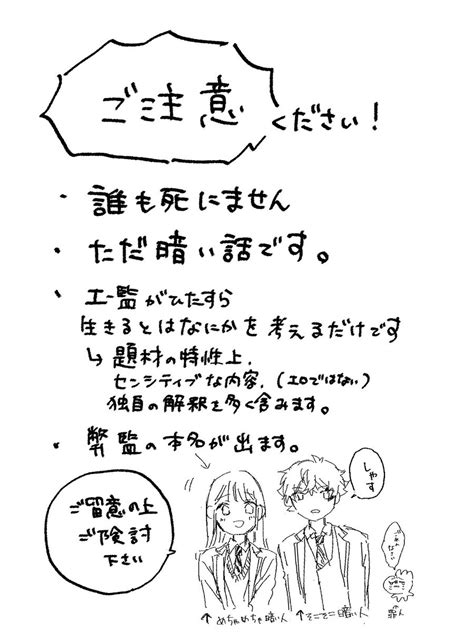 ご注意
ください!
・誰も死にません
・ただ暗い話です。
・エー監がひたすら
生きるとはなにかを考えるだけです
↳題材の特性上、
センシティブな内容、(エロではない)
独自の解釈を多く含みます。
・弊監の本名が出ます。
しゃす
ご留意の上
ご険討
下さい
↑めちゃめちゃ暗い人
↑そこそこ暗い人
罪人